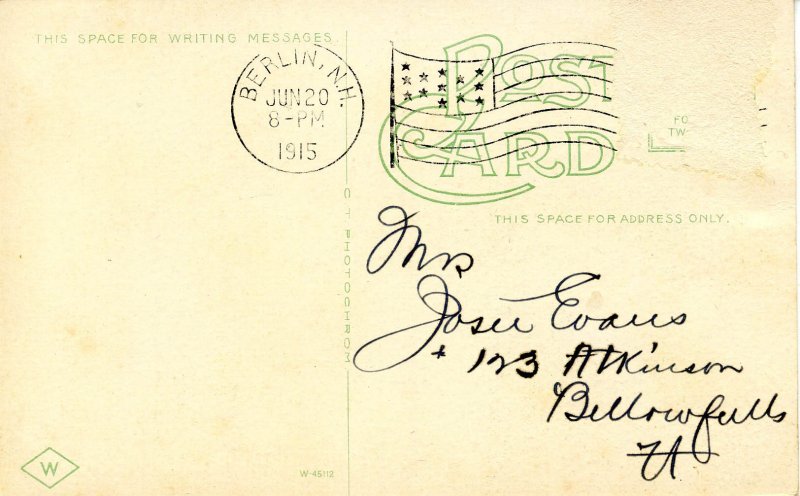 THIS SPACE FOR WRITING MESSAGES.
BERLIN, N.H.
JUN 20
8-PM
1915
POST
CARD
FO
TW
THIS SPACE FOR ADDRESS ONLY.
Mrs
Josie Evans
+ 123 Atkinson
Bellowfalls
Vt
PHOTOCHROM
W
W-45112